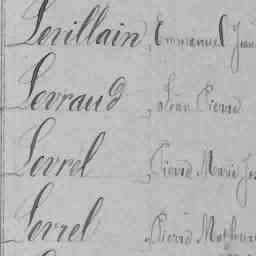 Levillain, Emmanuel Jean
Levraud, Jean Pierre
Levrel, Pierre Marie
Levrel, Pierre